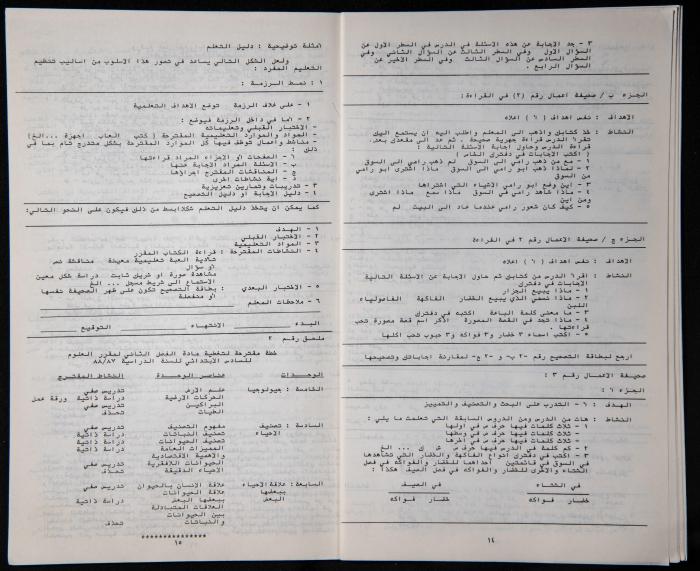 ٣ - جد الاجابة عن هذه الاسئلة في الدرس في السطر الاول عن
السؤال الاول وفي السطر الثالث عن السؤال الثاني وفي
السطر السادس عن السؤال الثالث وفي السطر الاخير عن
السؤال الرابع .
الجزء ب / صحيفة اعمال رقم (٢) في القراءة:
الاهداف : نفس اهداف ( ٦ ) اعلاه
النشاط : خذ كتابك واذهب الى المعلم واطلب اليه ان يستمع اليك
تقرأ الدرس قراءة جهرية صحيحة . ثم عد الى مقعدك بعد
قراءة الدرس وحاول اجابة الاسئلة التالية :
( اكتب الاجابات في دفترك الخاص )
١ - مع من ذهب رامي الى السوق لم ذهب رامي الى السوق
٢ - لماذا ذهب ابو رامي الى السوق ماذا اشترى ابو رامي
من السوق
٣ - اين وضع ابو رامي الاشياء التي اشتراها
٤ - ماذا شاهد رامي في السوق ماذا سمع ماذا اشترى
ومن اين
٥ - كيف كان شعور رامي عندما عاد الى البيت لم
الجزء ج / صحيفة الاعمال رقم ٢ في القراءة
الاهداف : نفس اهداف ( ٦ ) اعلاه
النشاط : اقرأ الدرس من كتابك ثم حاول الاجابة عن الاسئلة التالية
الاجابات في دفترك
١ - ماذا يبيع الجزار
٢ - ماذا نسمي الذي يبيع الخضار الفاكهة الفاصولياء
اللبن
٣ - ما معنى كلمة الباعة اكتبه في دفترك
٤ - ماذا تجد في القصة المصورة اذكر اسم قصة مصورة تحب
قراءتها .
٥ - اكتب اسماء ٣ خضار و٣ فواكه و٣ حبوب تحب اكلها
ارجع لبطاقة التصحيح رقم -٢ ب- و -٢ ج- لمقارنة اجاباتك وتصحيحها
صحيفة الاعمال رقم ٣ :
الجزء ٦ :
الهدف : ٦ - التدرب على البحث والتصنيف والتمييز
النشاط : هات من الدرس ومن الدروس السابقة التي تعلمت ما يلي :
١ - ثلاث كلمات فيها حرف س في اولها
ثلاث كلمات فيها حرف س في وسطها
ثلاث كلمات فيها حرف س في اخرها
٢ - كم كلمة في الدرس فيها حرف س ش ك ... الخ
٣ - اكتب في دفترك انواع الفاكهة والخضار التي تشاهدها
في السوق في قائمتين احداهما للخضار والفواكه في فصل
الشتاء والاخرى للخضار والفواكه في فصل الصيف هكذا :
في الشتاء في الصيف
خضار فواكه خضار فواكه
١٤
امثلة توضيحية : دليل التعلم
ولعل الشكل التالي يساعد في تصور هذا الاسلوب من اساليب تنظيم
التعليم المفرد :
١ : نمط الرزمة :
١ - على غلاف الرزمة توضع الاهداف التعليمية
٢ - اما في داخل الرزمة فيوضع :
- الاختبار القبلي وتعليماته
- المواد والتعليمية المقترحة ( كتب العاب اجهزة ...الخ)
- مناشط واعمال توظف فيها كل الموارد المقترحة بشكل متدرج تام بما في
ذلك :
٦ - الصفحات او الاجزاء المراد قراءتها
ب - الاسئلة المراد الاجابة عنها
ج - المناقشات المقترح اجراؤها
د - اية نشاطات اخرى
٣ - تدريبات وتمارين تعزيزية
٤ - دليل الاجابة او دليل التصحيح
كما يمكن ان يتخذ دليل التعلم شكلا ابسط من ذلك فيكون على النحو التالي:
١ - الهدف
٢ - الاختبار القبلي
٣ - المواد التعليمية
٤ - النشاطات المقترحة : قراءة الكتاب المقرر
تأدية العبة تعليمية معينة مناقشة نص
او سؤال
مشاهدة صورة او شريك ثابت دراسة شكل معين
الاستماع الى شريط مسجل ... الخ
٥ - الاختبار البعدي : بطاقة التصحيح تكون على ظهر الصحيفة نفسها
او منفصلة
٦ - ملاحظات المعلم
البدء الانتهاء التوقيع
ملحق رقم ٢
خطة مقترحة لتغطية مادة الفصل الثاني لمقرر العلوم
للسادس الابتدائي للسنة الدراسية ٨٨/٨٧
الوحدات عناصر الوحدة النشاط المقترح
الخامسة : جيولوجيا علم الارض تدريس صفي
الحركات الارضية دراسة ذاتية ورقة عمل
البراكين تدريس صفي
الطيات تحذف
السادسة : تصنيف مفهوم التصنيف تدريس صفي
الاحياء تصنيف النباتات دراسة ذاتية
تصنيف الحيوانات دراسة ذاتية
المميزات العامة
والاهمية الاقتصادية
الحيوانات اللافقرية تدريس صفي
الاحياء الدقيقة تحذف
السابعة : علاقة الاحياء علاقة الانسان بالحيوان تدريس صفي
ببعضها علاقة الحيوانات
البعض ببعضها البعض دراسة ذاتية
العلاقات المتبادلة
بين الحيوانات
والنباتات تحذف
***************
١٥